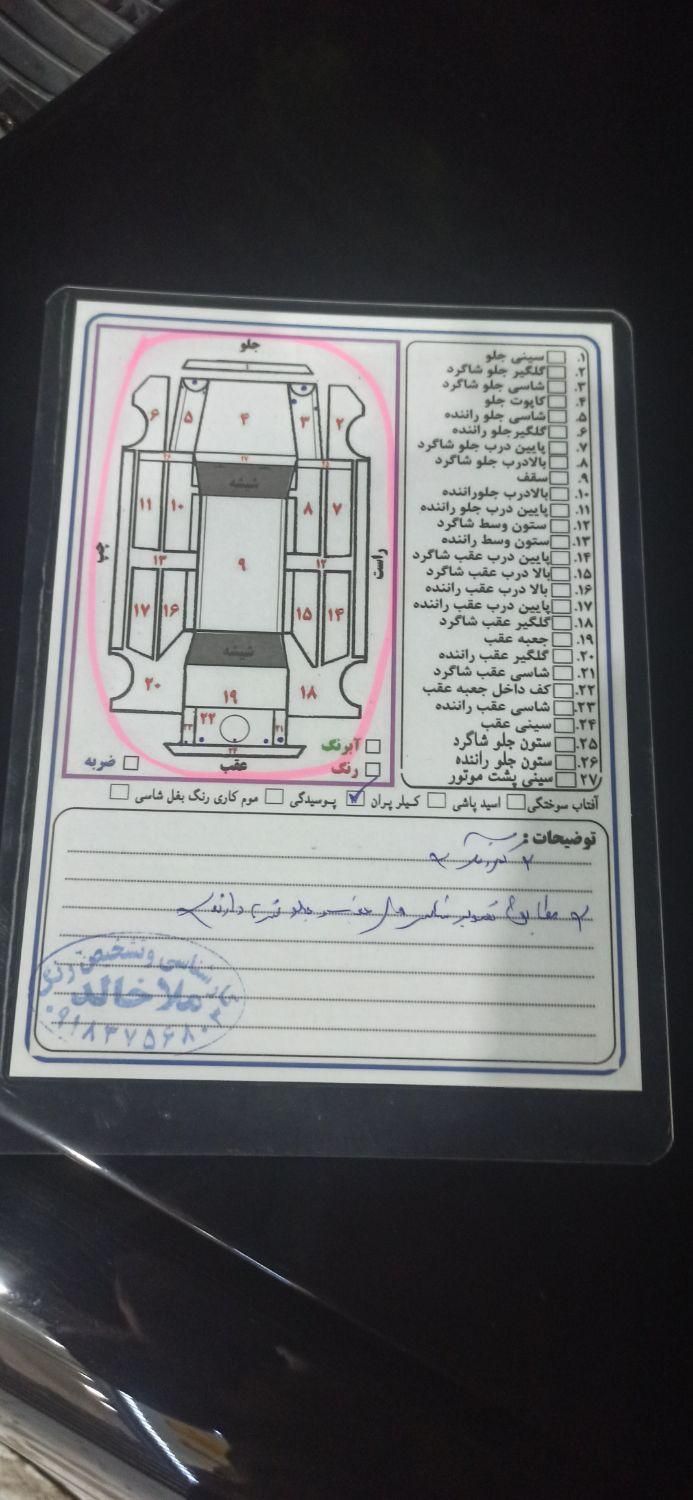 جلو
۱
۶ ۵ ۴ ۳ ۲
۲۶ ۲۷ ۲۵
شیشه
۱۱ ۱۰ ۸ ۷
چپ ۹ راست
۱۳ ۱۲
۱۷ ۱۶ ۱۵ ۱۴
شیشه
۲۰ ۱۹ ۱۸
۲۳ ۲۲ ۲۱
۲۴
عقب
آبرنگ
رنگ
ضربه
۱. سینی جلو
۲. گلگیر جلو شاگرد
۳. شاسی جلو شاگرد
۴. کاپوت جلو
۵. شاسی جلو راننده
۶. گلگیرجلو راننده
۷. پایین درب جلو شاگرد
۸. بالادرب جلو شاگرد
۹. سقف
۱۰. بالادرب جلوراننده
۱۱. پایین درب جلو راننده
۱۲. ستون وسط شاگرد
۱۳. ستون وسط راننده
۱۴. پایین درب عقب شاگرد
۱۵. بالا درب عقب شاگرد
۱۶. بالا درب عقب راننده
۱۷. پایین درب عقب راننده
۱۸. گلگیر عقب شاگرد
۱۹. جعبه عقب
۲۰. گلگیر عقب راننده
۲۱. شاسی عقب شاگرد
۲۲. کف داخل جعبه عقب
۲۳. شاسی عقب راننده
۲۴. سینی عقب
۲۵. ستون جلو شاگرد
۲۶. ستون جلو راننده
۲۷. سینی پشت موتور
آفتاب سوختگی اسید پاشی کیلر پران پوسیدگی موم کاری رنگ بغل شاسی
توضیحات :
مطابق تصویر
کارشناسی و تشخیص رنگ
ملا خالد